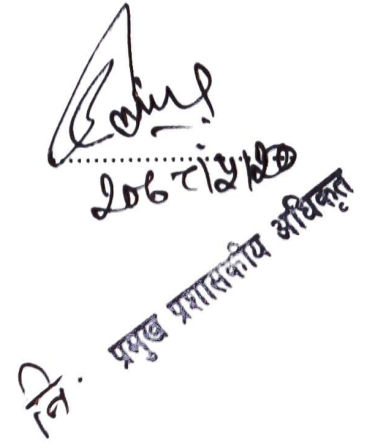 २०७८/५/२०
नि. प्रमुख प्रशासकीय अधिकृत